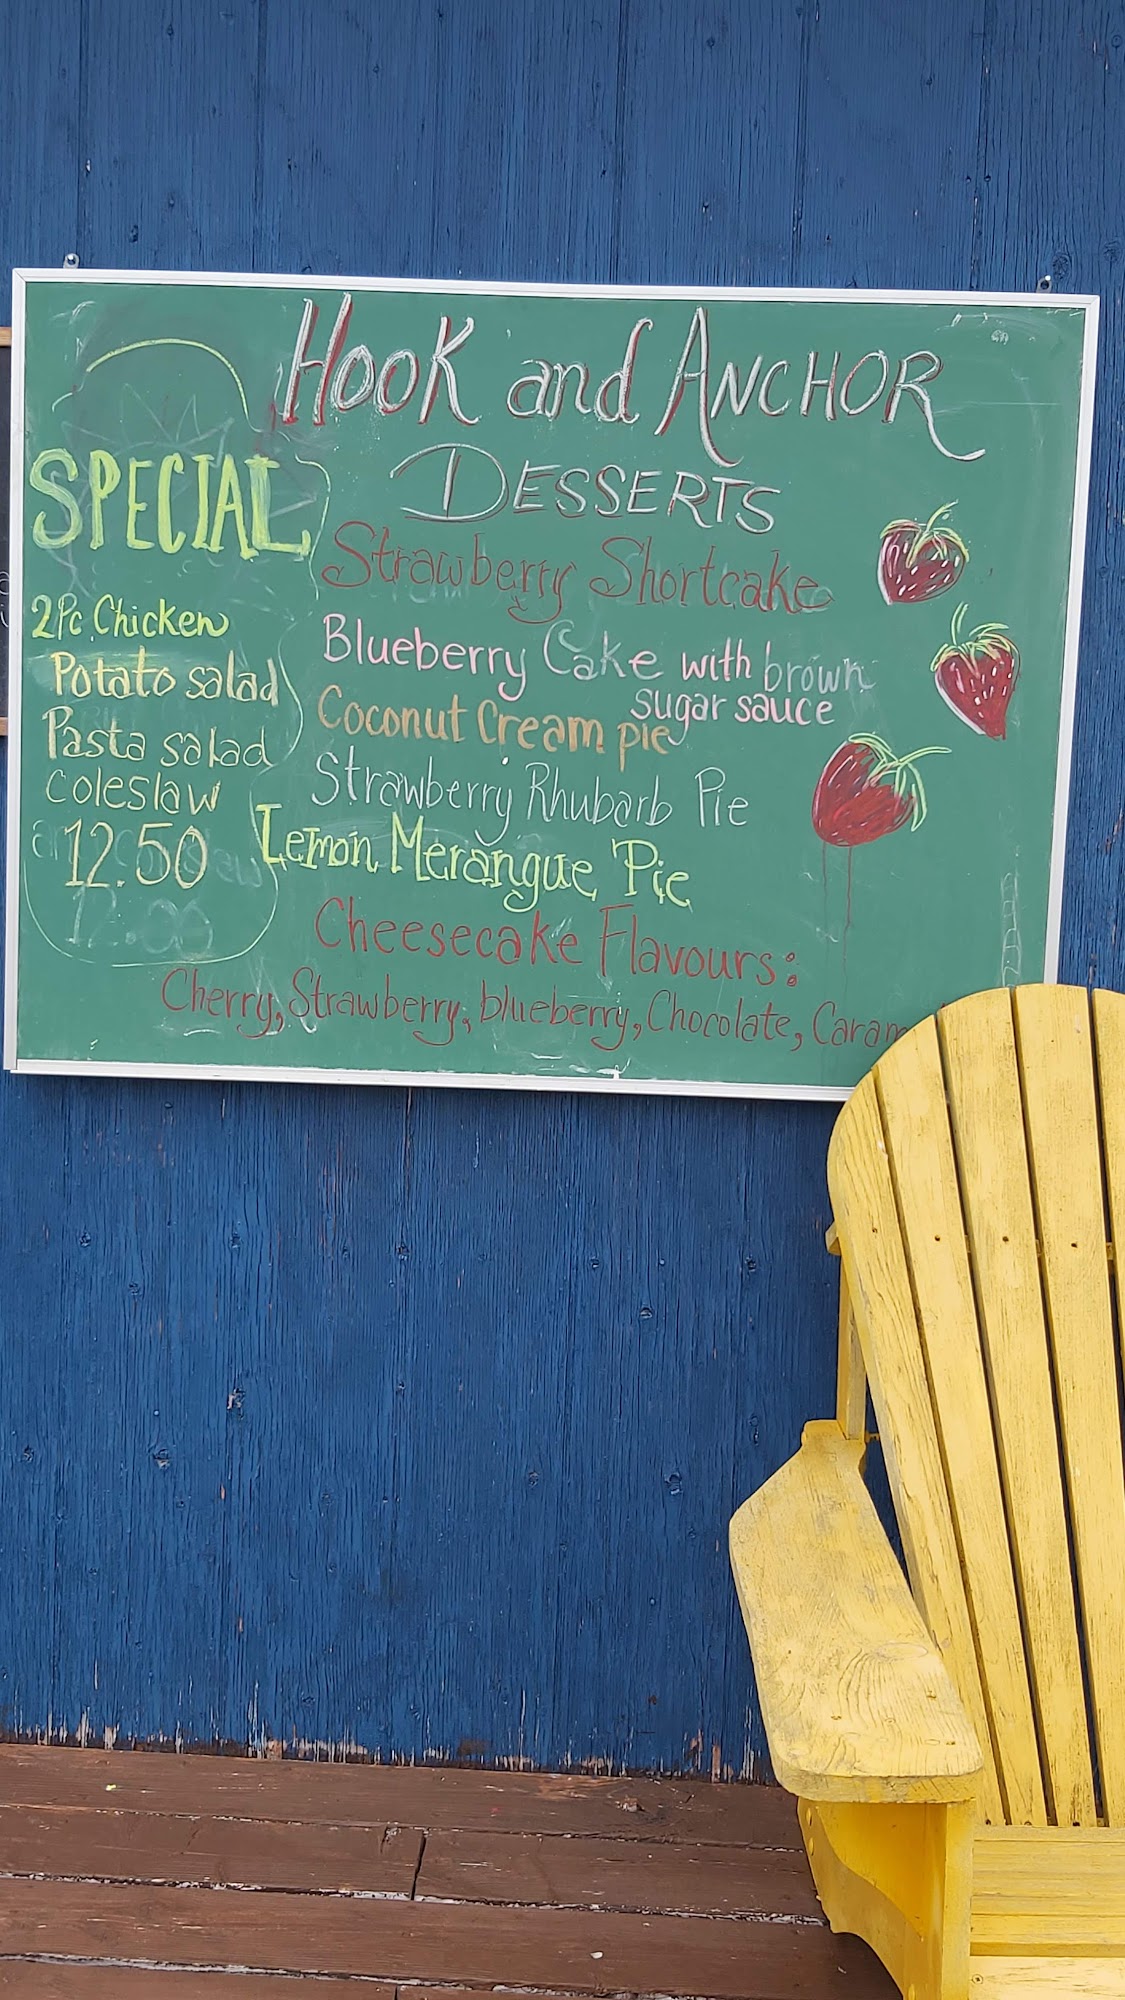 Hook and Anchor
Desserts
Strawberry Shortcake
Blueberry Cake with brown
sugar sauce
Coconut Cream pie
Strawberry Rhubarb Pie
Lemon Merangue Pie
Cheesecake Flavours:
Cherry, Strawberry, blueberry, Chocolate, Caram
SPECIAL
2Pc. Chicken
Potato salad
Pasta salad
coleslaw
12.50